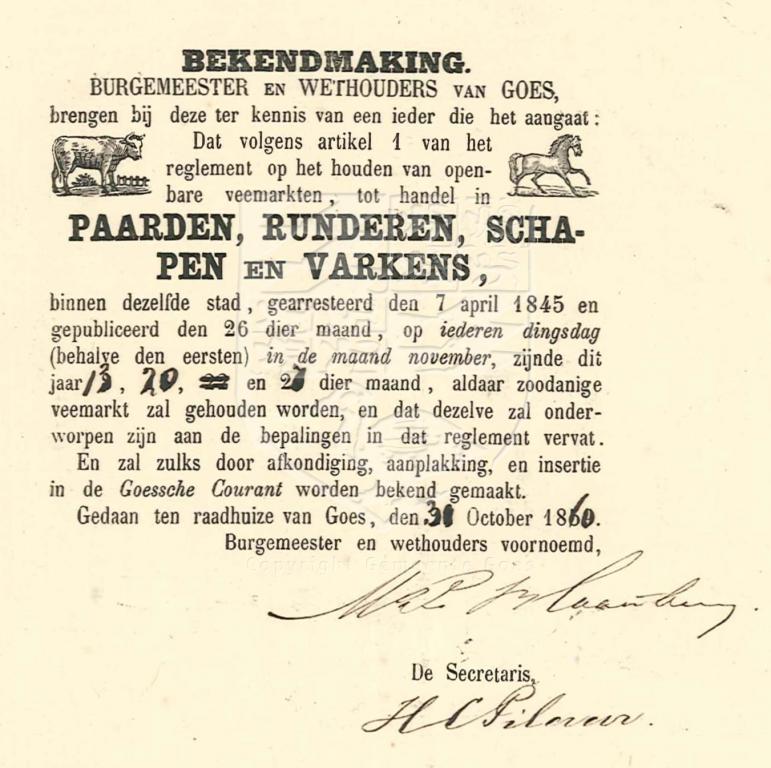 BEKENDMAKING.
BURGEMEESTER EN WETHOUDERS VAN GOES,
brengen bij deze ter kennis van een ieder die het aangaat:
Dat volgens artikel 1 van het
reglement op het houden van open-
bare veemarkten, tot handel in
PAARDEN, RUNDEREN, SCHA-
PEN EN VARKENS,
binnen dezelfde stad, gearresteerd den 7 april 1845 en
gepubliceerd den 26 dier maand, op iederen dingsdag
(behalve den eersten) in de maand november, zijnde dit
jaar 13, 20, 22 en 27 dier maand, aldaar zoodanige
veemarkt zal gehouden worden, en dat dezelve zal onder-
worpen zijn aan de bepalingen in dat reglement vervat.
En zal zulks door afkondiging, aanplakking, en insertie
in de Goessche Courant worden bekend gemaakt.
Gedaan ten raadhuize van Goes, den October 1860.
Burgemeester en wethouders voornoemd,
Copyright Gemeente Goes
De Secretaris,
H C Pilaar.